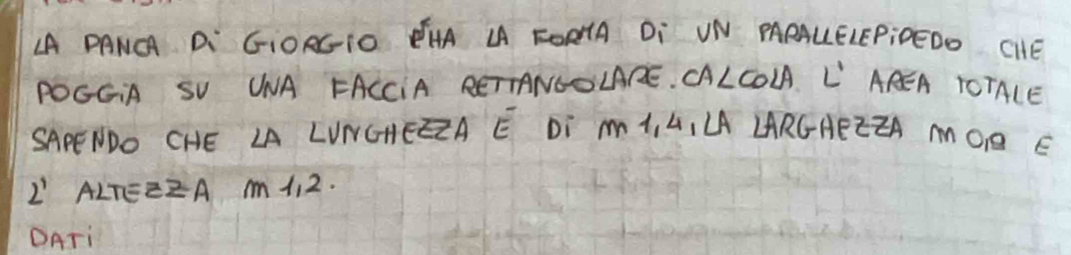 LA PANCA Di GiORGiO HA LA FORMA Di UN PARALLELEPiPEDO CHE
POGGiA SU UNA FACCiA RETTANGOLARE. CALCOLA L' AREA TOTALE
SAPENDO CHE LA LUNGHEZZA È Di m 1,4, LA LARGHEZZA m E
L' ALTEZZA m 1,2.
DATi